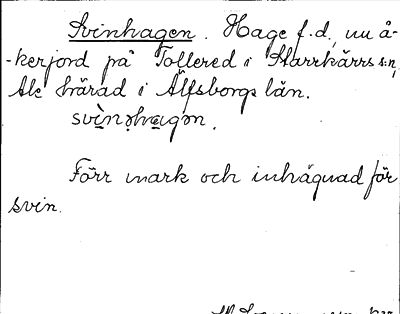 Svinhagen. Hage f.d., nu å-
-kerjord på Tollered i Starrkärrs s:n,
Ale härad i Älfsborgs län.
Förr mark och inhägnad för
svin.